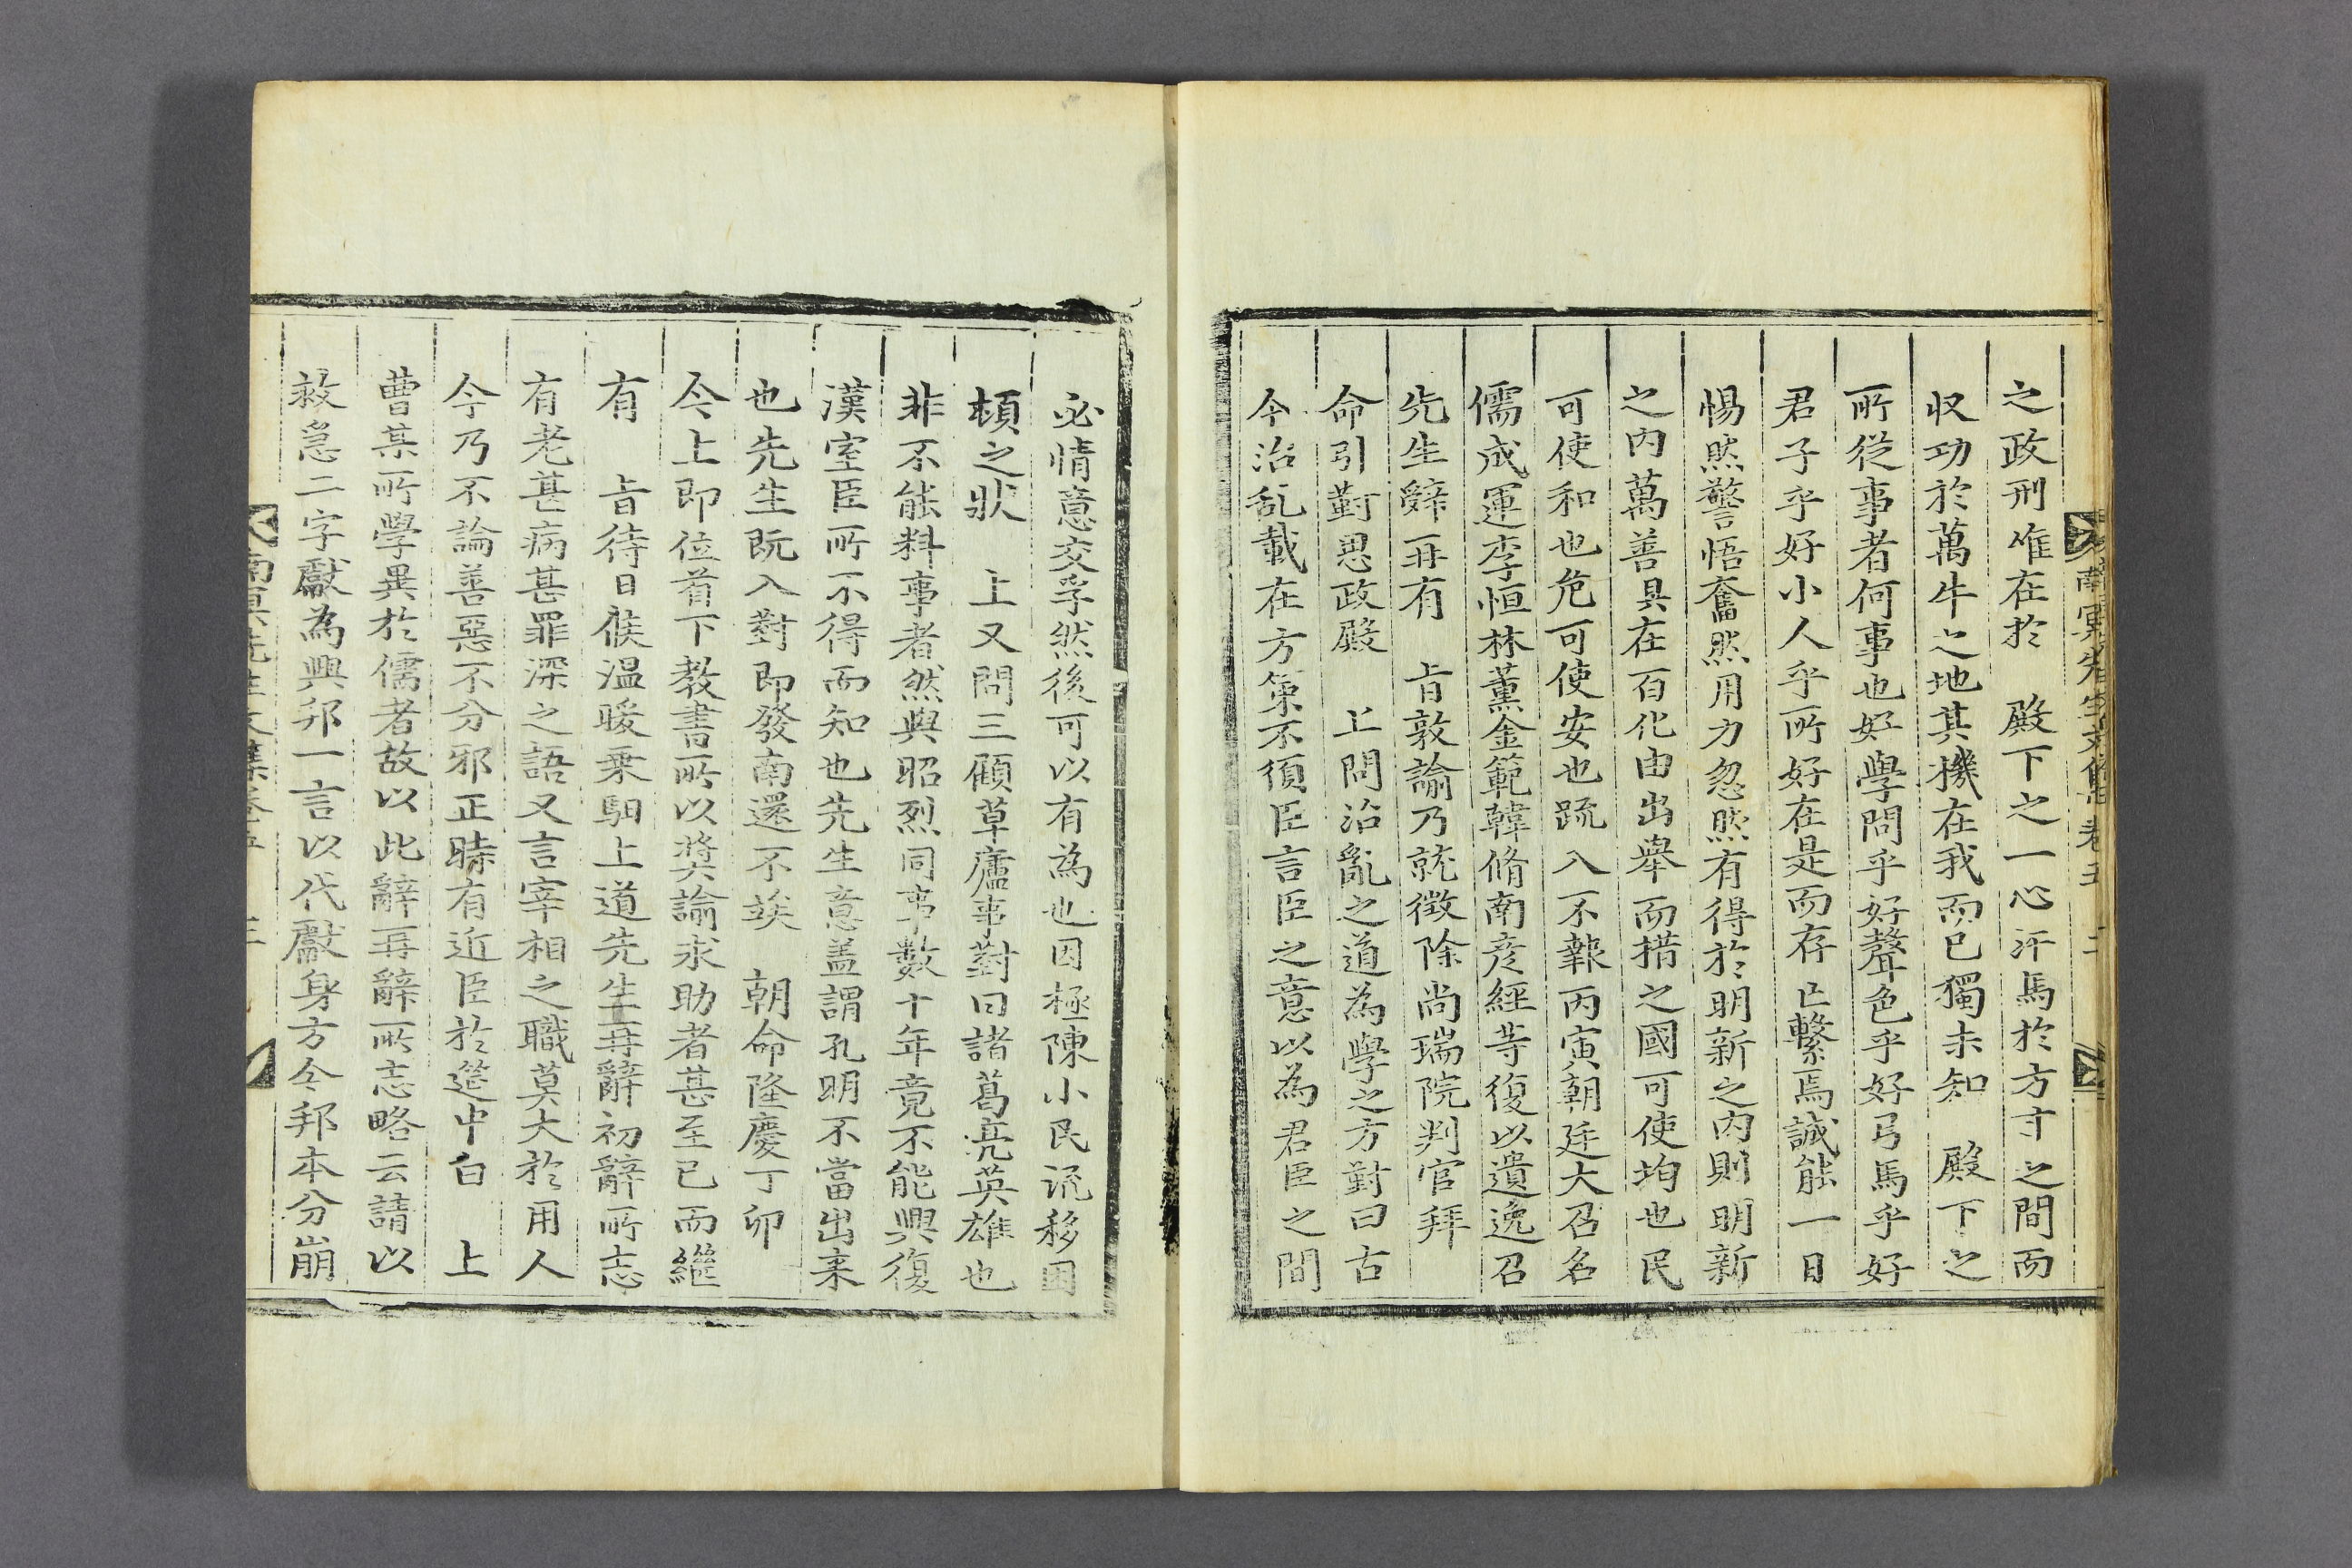 南冥先生文集卷五　二
之政刑唯在於　殿下之一心汗馬於方寸之間而
収功於萬牛之地其機在我而已獨未知　殿下之
所從事者何事也好學問乎好聲色乎好弓馬乎好
君子乎好小人乎所好在是而存亡繫焉誠能一日
惕然警悟奮然用力忽然有得於明新之內則明新
之內萬善具在百化由出舉而措之國可使均也民
可使和也危可使安也疏入不報丙寅朝廷大召名
儒成運李恒林薰金範韓脩南彦經等復以遺逸召
先生辭再有　旨敦諭乃就徴除尚瑞院判官拜
命引對思政殿　上問治亂之道為學之方對曰古
今治乱載在方策不須臣言臣之意以為君臣之間
必情意交孚然後可以有為也因極陳小民流移困
頓之狀　上又問三顧草廬事對曰諸葛亮英雄也
非不能料事者然與昭烈同事數十年竟不能興復
漢室臣所不得而知也先生意盖謂孔明不當出来
也先生既入對即發南還不竢　朝命隆慶丁卯
今上即位首下教書所以奬諭求助者甚至已而繼
有　旨待日候温暖乗馹上道先生再辭初辭所志
有老甚病甚罪深之語又言宰相之職莫大於用人
今乃不論善惡不分邪正時有近臣於筵中白　上
曹某所學異於儒者故以此辭再辭所志略云請以
救急二字獻為興邦一言以代獻身方今邦本分崩
南冥先生文集卷五　三